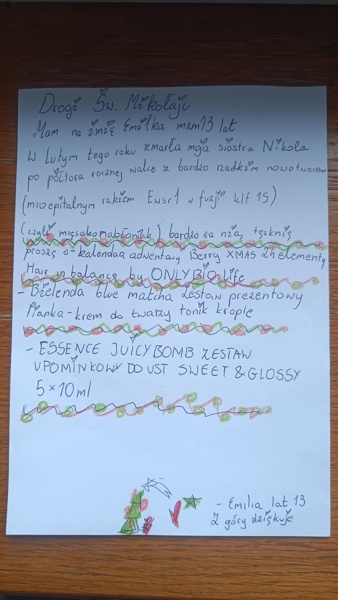 Drogi Św. Mikołaju
Mam na imię Emilka mam 13 lat
W Lutym tego roku zmarła moja siostra Nikola
po półtora rocznej walce z bardzo rzadkim nowotworem
(mioepitalnym rakiem Ewsr1 w fuzji klf 15)
(czyli mięsakonabłoniak) bardzo za nią tęsknię
proszę o - kalendarz adwentowy Berry XMAS 24 elementy
Hair in balance by ONLYBIO life
- Bielenda blue matcha zestaw prezentowy
Pianka - krem do twarzy tonik krople
- ESSENCE JUICY BOMB ZESTAW
UPOMINKOWY DO UST SWEET & GLOSSY
5 x 10 ml
- Emilia lat 13
Z góry dziękuję